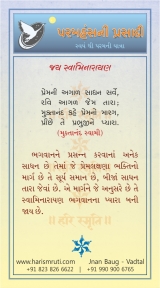 પરમહંસની પ્રસાદી
સ્વયં થી પરમની યાત્રા
જય સ્વામિનારાયણ
પ્રેમની આગળ સાધન સર્વે,
રવિ આગળ જેમ તારા;
મુક્તાનંદ કહે પ્રેમનો મારગ,
પ્રીછે તે પ્રભુજીને પ્યારા.
(મુક્તાનંદ સ્વામી)
ભગવાનને પ્રસન્ન કરવાનાં અનેક
સાધન છે તેમાં જે પ્રેમલક્ષણા ભક્તિનો
માર્ગ છે તે સૂર્ય સમાન છે, બીજાં સાધન
તારા જેવાં છે. એ માર્ગને જે અનુસરે છે તે
સ્વામિનારાયણ ભગવાનના પ્યારા બની
જાય છે.
|| हरि स्मृति ||
www.harismruti.com
Jnan Baug - Vadtal
+91 823 826 6622
+91 990 900 6765